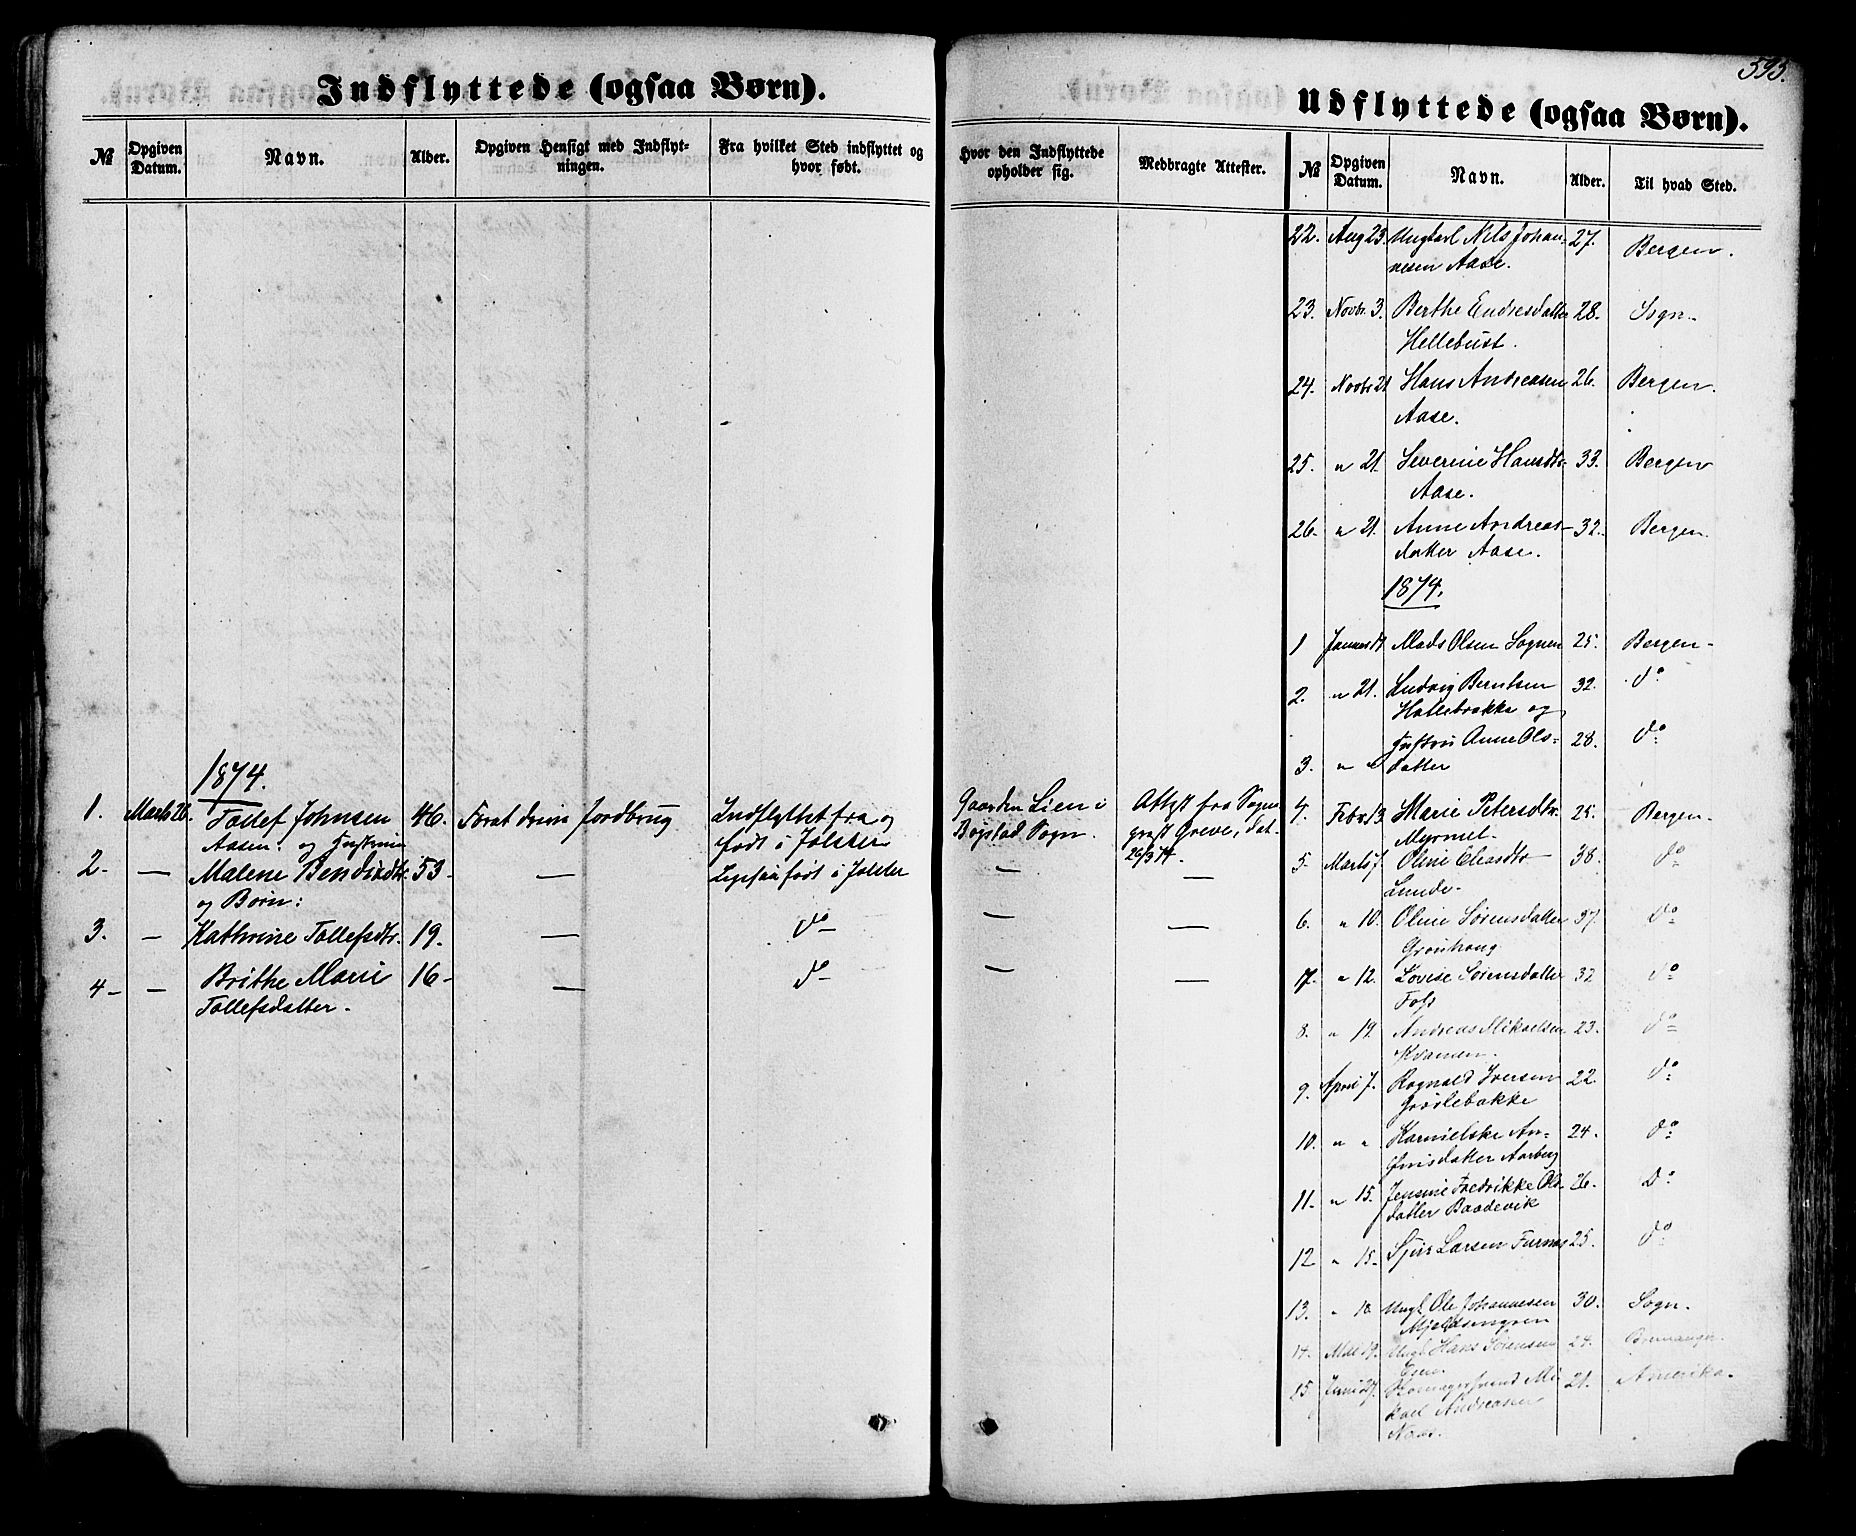 595.
Indflyttede (ogsaa Børn).
№
Opgiven Datum.
Navn.
Alder.
Opgiven Hensigt med Indflyt-
ningen.
Fra hvilket Sted indflyttet og
hvor født.
Hvor den Indflyttede
opholder sig.
Medbragte Attester.
1874.
1. Marts 26. Tollef Johnsen 46. For at drive Jordbrug Indflyttet fra og Gaarden Lien i Attest fra Sogne
Aasen og Hustrue født i Jølster Bygstad Sogn. præst Greve, dat.
26/3 74.
2- — Malene Bendixdtr. 53- — Ligesaa født i Jølster — —
og Børn:
3. - Kathrine Tollefsdtr. 19. — do — —
4- - Brithe Marie 16- — do — —
Tollefsdatter.
Udflyttede (ogsaa Børn).
№
Opgiven
Datum.
Navn.
Alder.
Til hvad Sted.
22. Aug 23. Ungkarl Nils Johan- 27. Bergen.
nesen Aase.
23. Novbr. 3. Berthe Endresdatter 28. Sogn.
Hellebust.
24. Novbr 21 Hans Andreasen 26. Bergen.
Aase.
25. " 21. Severine Hansdtr. 33. Bergen
Aase.
26. " 21. Anne Andreas- 32. Bergen.
datter Aase.
1874.
1 Mads Olsen Sognen 25. Bergen-
2. " 21. Ludvig Berntsen 32. do
og
Hustru Anne Ols- 28. do
3. " " datter
4. Febr. 13 Marie Petersdtr. 25. Bergen.
Myrmel.
5. Marts 7. Oline Eliasdtr 38. do
Lunde.
6. " 10. Oline Sørensdatter 37. do
Grønhaug
7. " 12. Lovise Sørensdatter 32 do
Foss
8. " 19. Andreas Mikaelsen 23. do
Kvamen.
9. April 7. Rognald Iversen 22. do
10. " " 24. do
datter Aarberg
11. " 15. Jensine Fredrikke Ols 26. Do
datter Baadevik
12 " 15. Sjur Larsen Furnes 25. do
13. " Ungk. Ole Johannesen 30. Sogn.
14. Ungk. Hans Sørensen 24. Bremanger.
15. Juni 27. Mi- 21. Amerika.
kael Andreasen